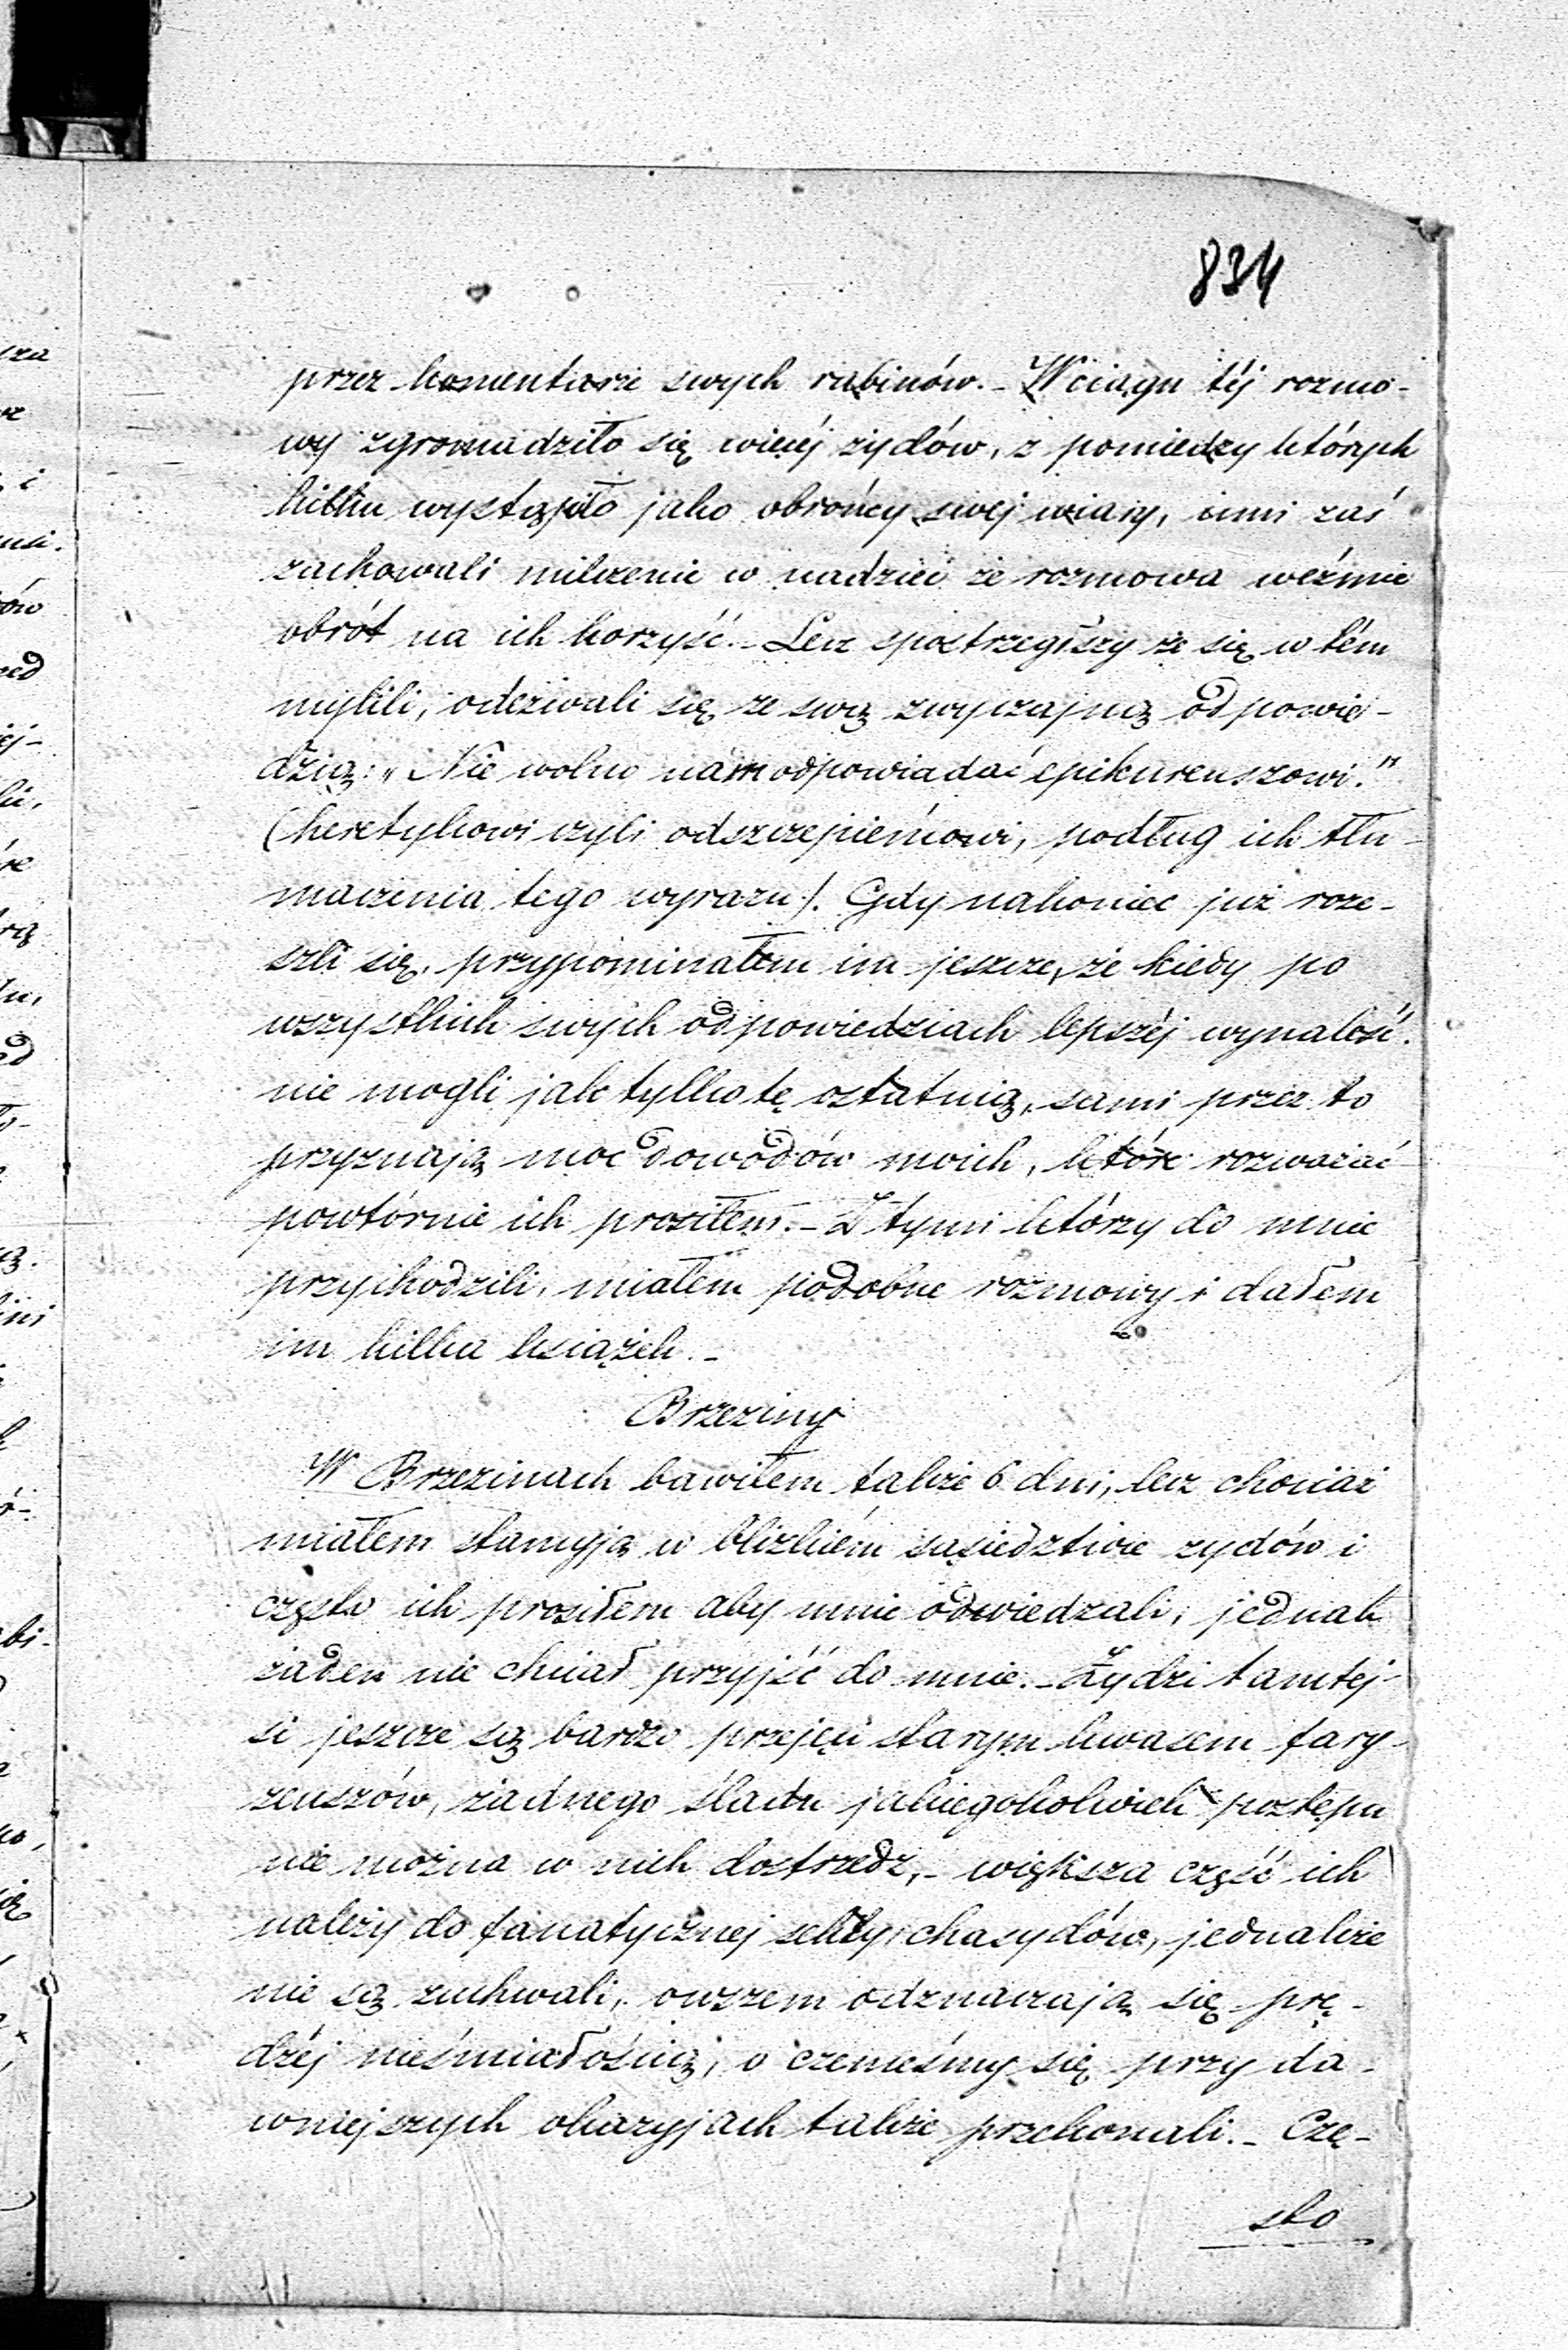 834
przez komentarze swych rabinów. - W ciągu téj rozmo-
wy zgromadziło się więcéj żydów, z pomiedzy których
kilku wystąpiło jako obrońcy swej wiary, inni zaś
zachowali milczenie w nadziei że rozmowa weźmie
obrót na ich korzyść. - Lecz spostrzegłszy że się w tém
mylili, odezwali się ze swą zwyczajną odpowie-
dzią: „Nie wolno nam odpowiadać epikureuszowi."
(heretykowi czyli odszczepieńcowi, podług ich tłu-
maczenia tego wyrazu). Gdy nakoniec już roze-
szli się, przypominałem im jeszcze, że kiedy po
wszystkich swych odpowiedziach lepszéj wynaleść
nie mogli jak tylko tę ostatnią, sami przez to
przyznają moc dowodów moich, które rozważać
powtórnie ich prosiłem. - Z tymi którzy do mnie
przychodzili, miałem podobne rozmowy i dałem
im kilka książek. -
Brzeziny
W Brzezinach bawiłem także 6 dni, lecz chociaż
miałem stancyją w blizkiém sąsiedztwie żydów i
często ich prosiłem aby mnie odwiedzali, jednak
żaden nie chciał przyjść do mnie. - Żydzi tamtej-
si jeszcze są bardzo przejęci starym kwasem fary-
zeuszów, żadnego śladu jakiegokolwiek postępu
nie można w nich dostrzedz, - większa część ich
należy do fanatycznej sekty chasydów, jednakże
nie są zuchwali, owszem odznaczają się prę-
dzéj nieśmiałością, o czemeśmy się przy da-
wniejszych okazyjach także przekonali. - Czę-
sto